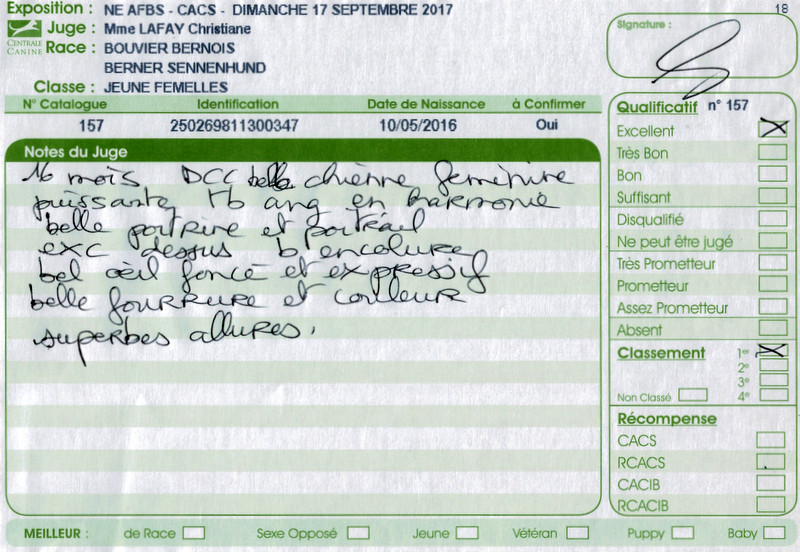 Exposition : NE AFBS - CACS - DIMANCHE 17 SEPTEMBRE 2017
18
CENTRALE CANINE
Juge : Mme LAFAY Christiane
Race : BOUVIER BERNOIS
BERNER SENNENHUND
Classe : JEUNE FEMELLES
Signature :
N° Catalogue Identification Date de Naissance à Confirmer
157 250269811300347 10/05/2016 Oui
Notes du Juge
16 mois DCC belle chienne féminine
puissante, tb ang en harmonie
belle poitrine et poitrail
exc dessus b encolure
bel œil foncé et expressif
belle fourrure et couleur
superbes allures.
Qualificatif n° 157
Excellent
Très Bon
Bon
Suffisant
Disqualifié
Ne peut être jugé
Très Prometteur
Prometteur
Assez Prometteur
Absent
Classement 1er
2e
3e
Non Classé 4e
Récompense
CACS
RCACS
CACIB
RCACIB
MEILLEUR : de Race Sexe Opposé Jeune Vétéran Puppy Baby